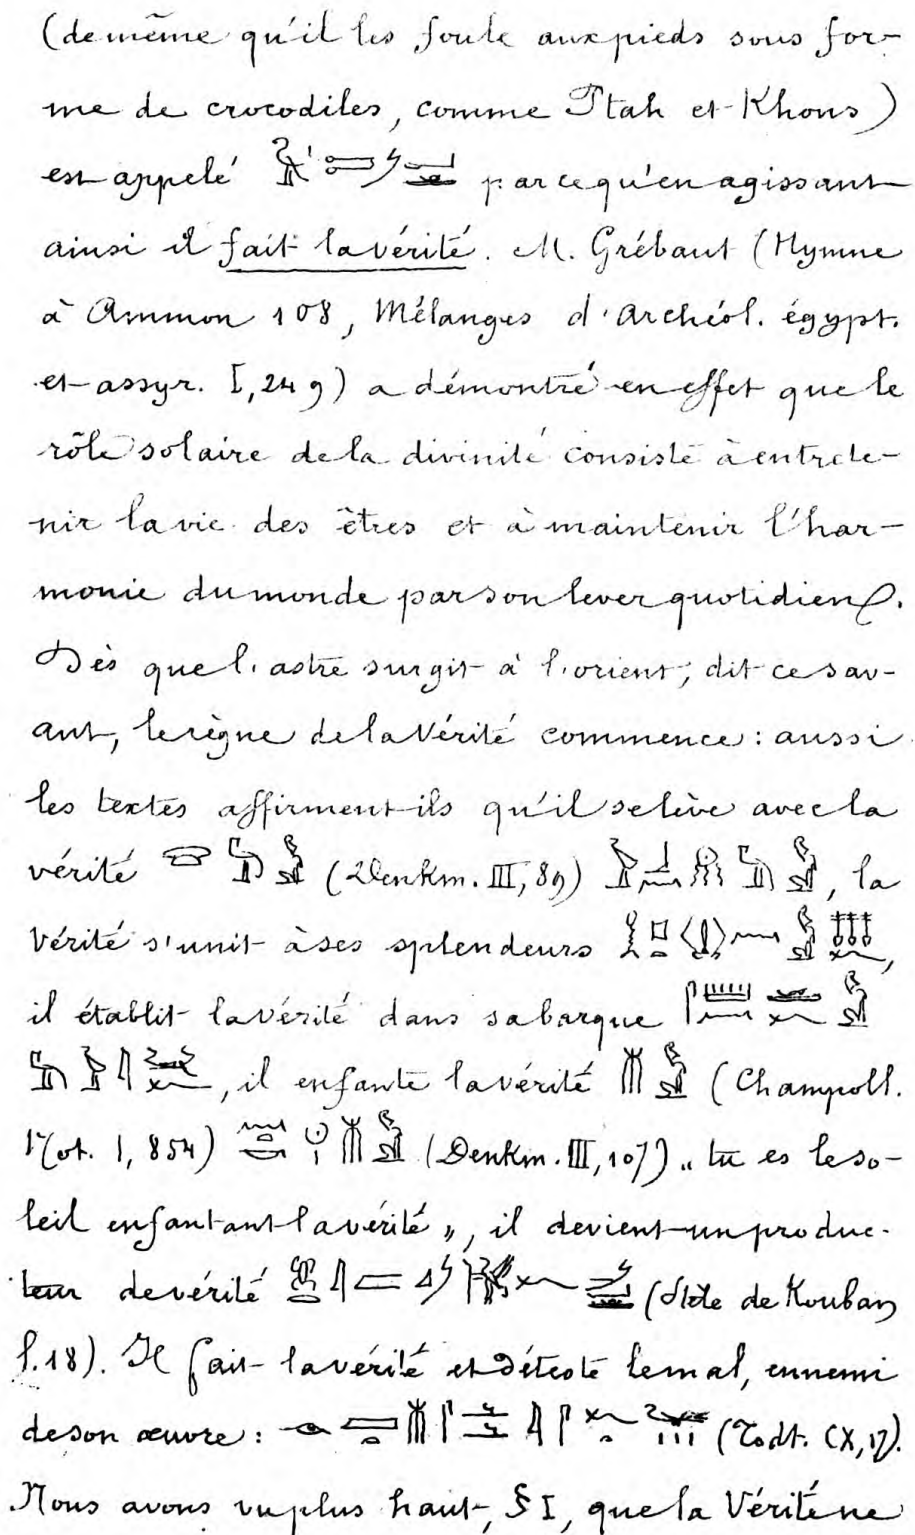 (de même qu'il les foule aux pieds sous for-
me de crocodiles, comme Ptah et Khons)
est appelé parce qu'en agissant
ainsi il fait la vérité. M. Grébaut (Hymne
à Ammon 108, Mélanges d'Archéol. égypt.
et assyr. I, 249) a démontré en effet que le
rôle solaire de la divinité consiste à entrete-
nir la vie des êtres et à maintenir l'har-
monie du monde par son lever quotidien.
Dès que l'astre surgit à l'orient, dit ce sav-
ant, le règne de la Vérité commence: aussi
les textes affirment-ils qu'il se lève avec la
vérité (Denkm. III, 89) , la
Vérité s'unit à ses splendeurs ,
il établit la vérité dans sa barque
, il enfante la vérité (Champoll.
Not. I, 854) (Denkm. III, 107) „ tu es le so-
leil enfantant la vérité „, il devient un produc-
teur de vérité (Stèle de Kouban
l. 18). Il fait la vérité et déteste le mal, ennemi
de son œuvre: (Todt. CX, 17).
Nous avons vu plus haut, § I, que la Vérité ne